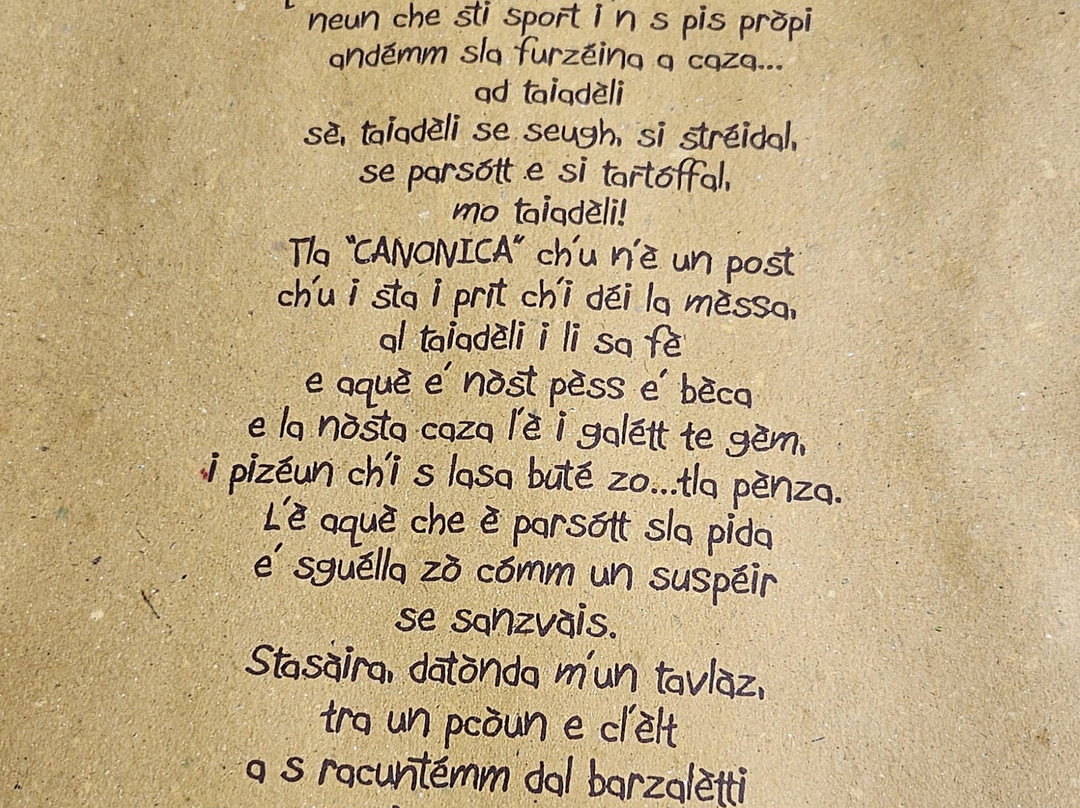 neun che sti sport i n s pis pròpi
andémm sla furzéina a caza...
ad taiadèli
sè, taiadèli se seugh, si stréidal,
se parsótt e si tartóffal,
mo taiadèli!
Tla "CANONICA" ch'u n'è un post
ch'u i sta i prit ch'i déi la mèssa,
al taiadèli i li sa fè
e aquè e' nòst pèss e' bèca
e la nòsta caza l'è i galétt te gèm,
i pizéun ch'i s lasa buté zo...tla pènza.
L'è aquè che è parsótt sla pida
e' sguélla zò cómm un suspéir
se sanzvàis.
Stasàira, datònda m'un tavlàz,
tra un pcòun e cl'èlt
a s racuntémm dal barzalètti